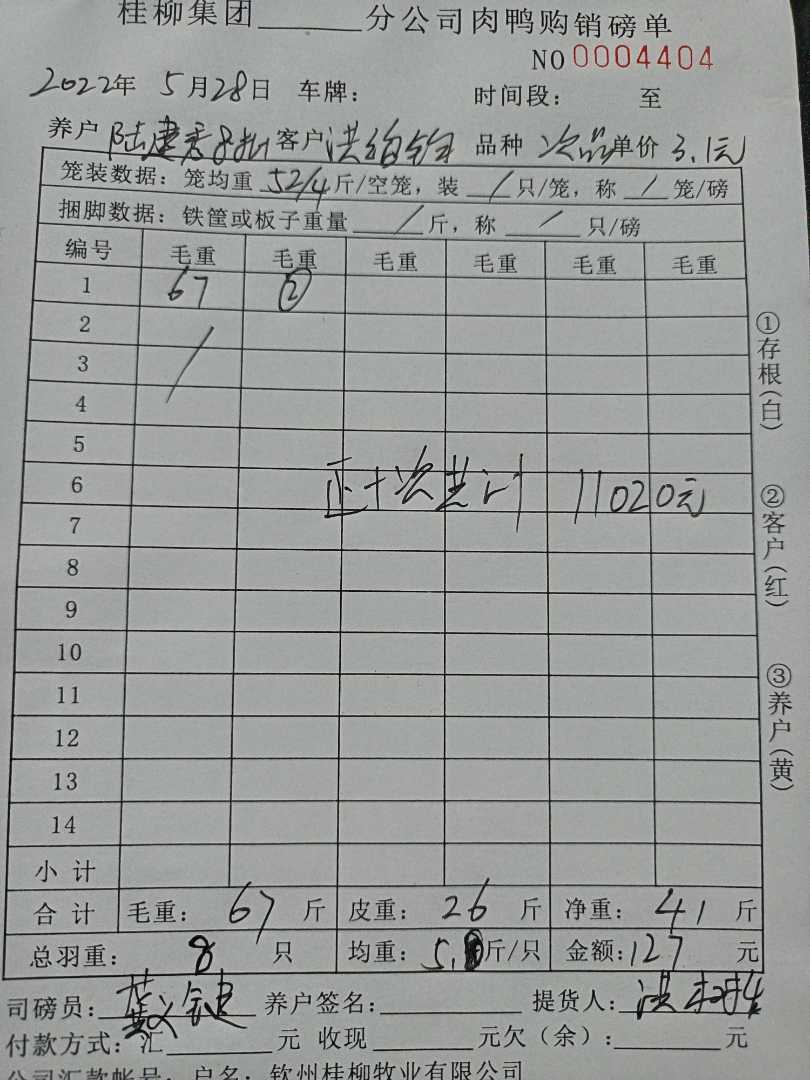 桂柳集团______分公司肉鸭购销磅单
NO 0004404
2022年 5月28日 车牌: 时间段: 至
养户 陆建 客户 洪 品种 次品 单价 3.1元
笼装数据: 笼均重 52/4 斤/空笼, 装 / 只/笼, 称 / 笼/磅
捆脚数据: 铁筐或板子重量 / 斤, 称 / 只/磅
编号 毛重 毛重 毛重 毛重 毛重 毛重
1 67 ②
2
3
4
5
6 正+次共计 11020元
7
8
9
10
11
12
13
14
小计
合计 毛重: 67 斤 皮重: 26 斤 净重: 41 斤
总羽重: 8 只 均重: 5. 斤/只 金额: 127 元
司磅员: 养户签名: 提货人: 洪
付款方式: 汇______元 收现______元欠(余): ______元
公司汇款帐号: 户名: 钦州桂柳牧业有限公司
①存根(白)
②客户(红)
③养户(黄)